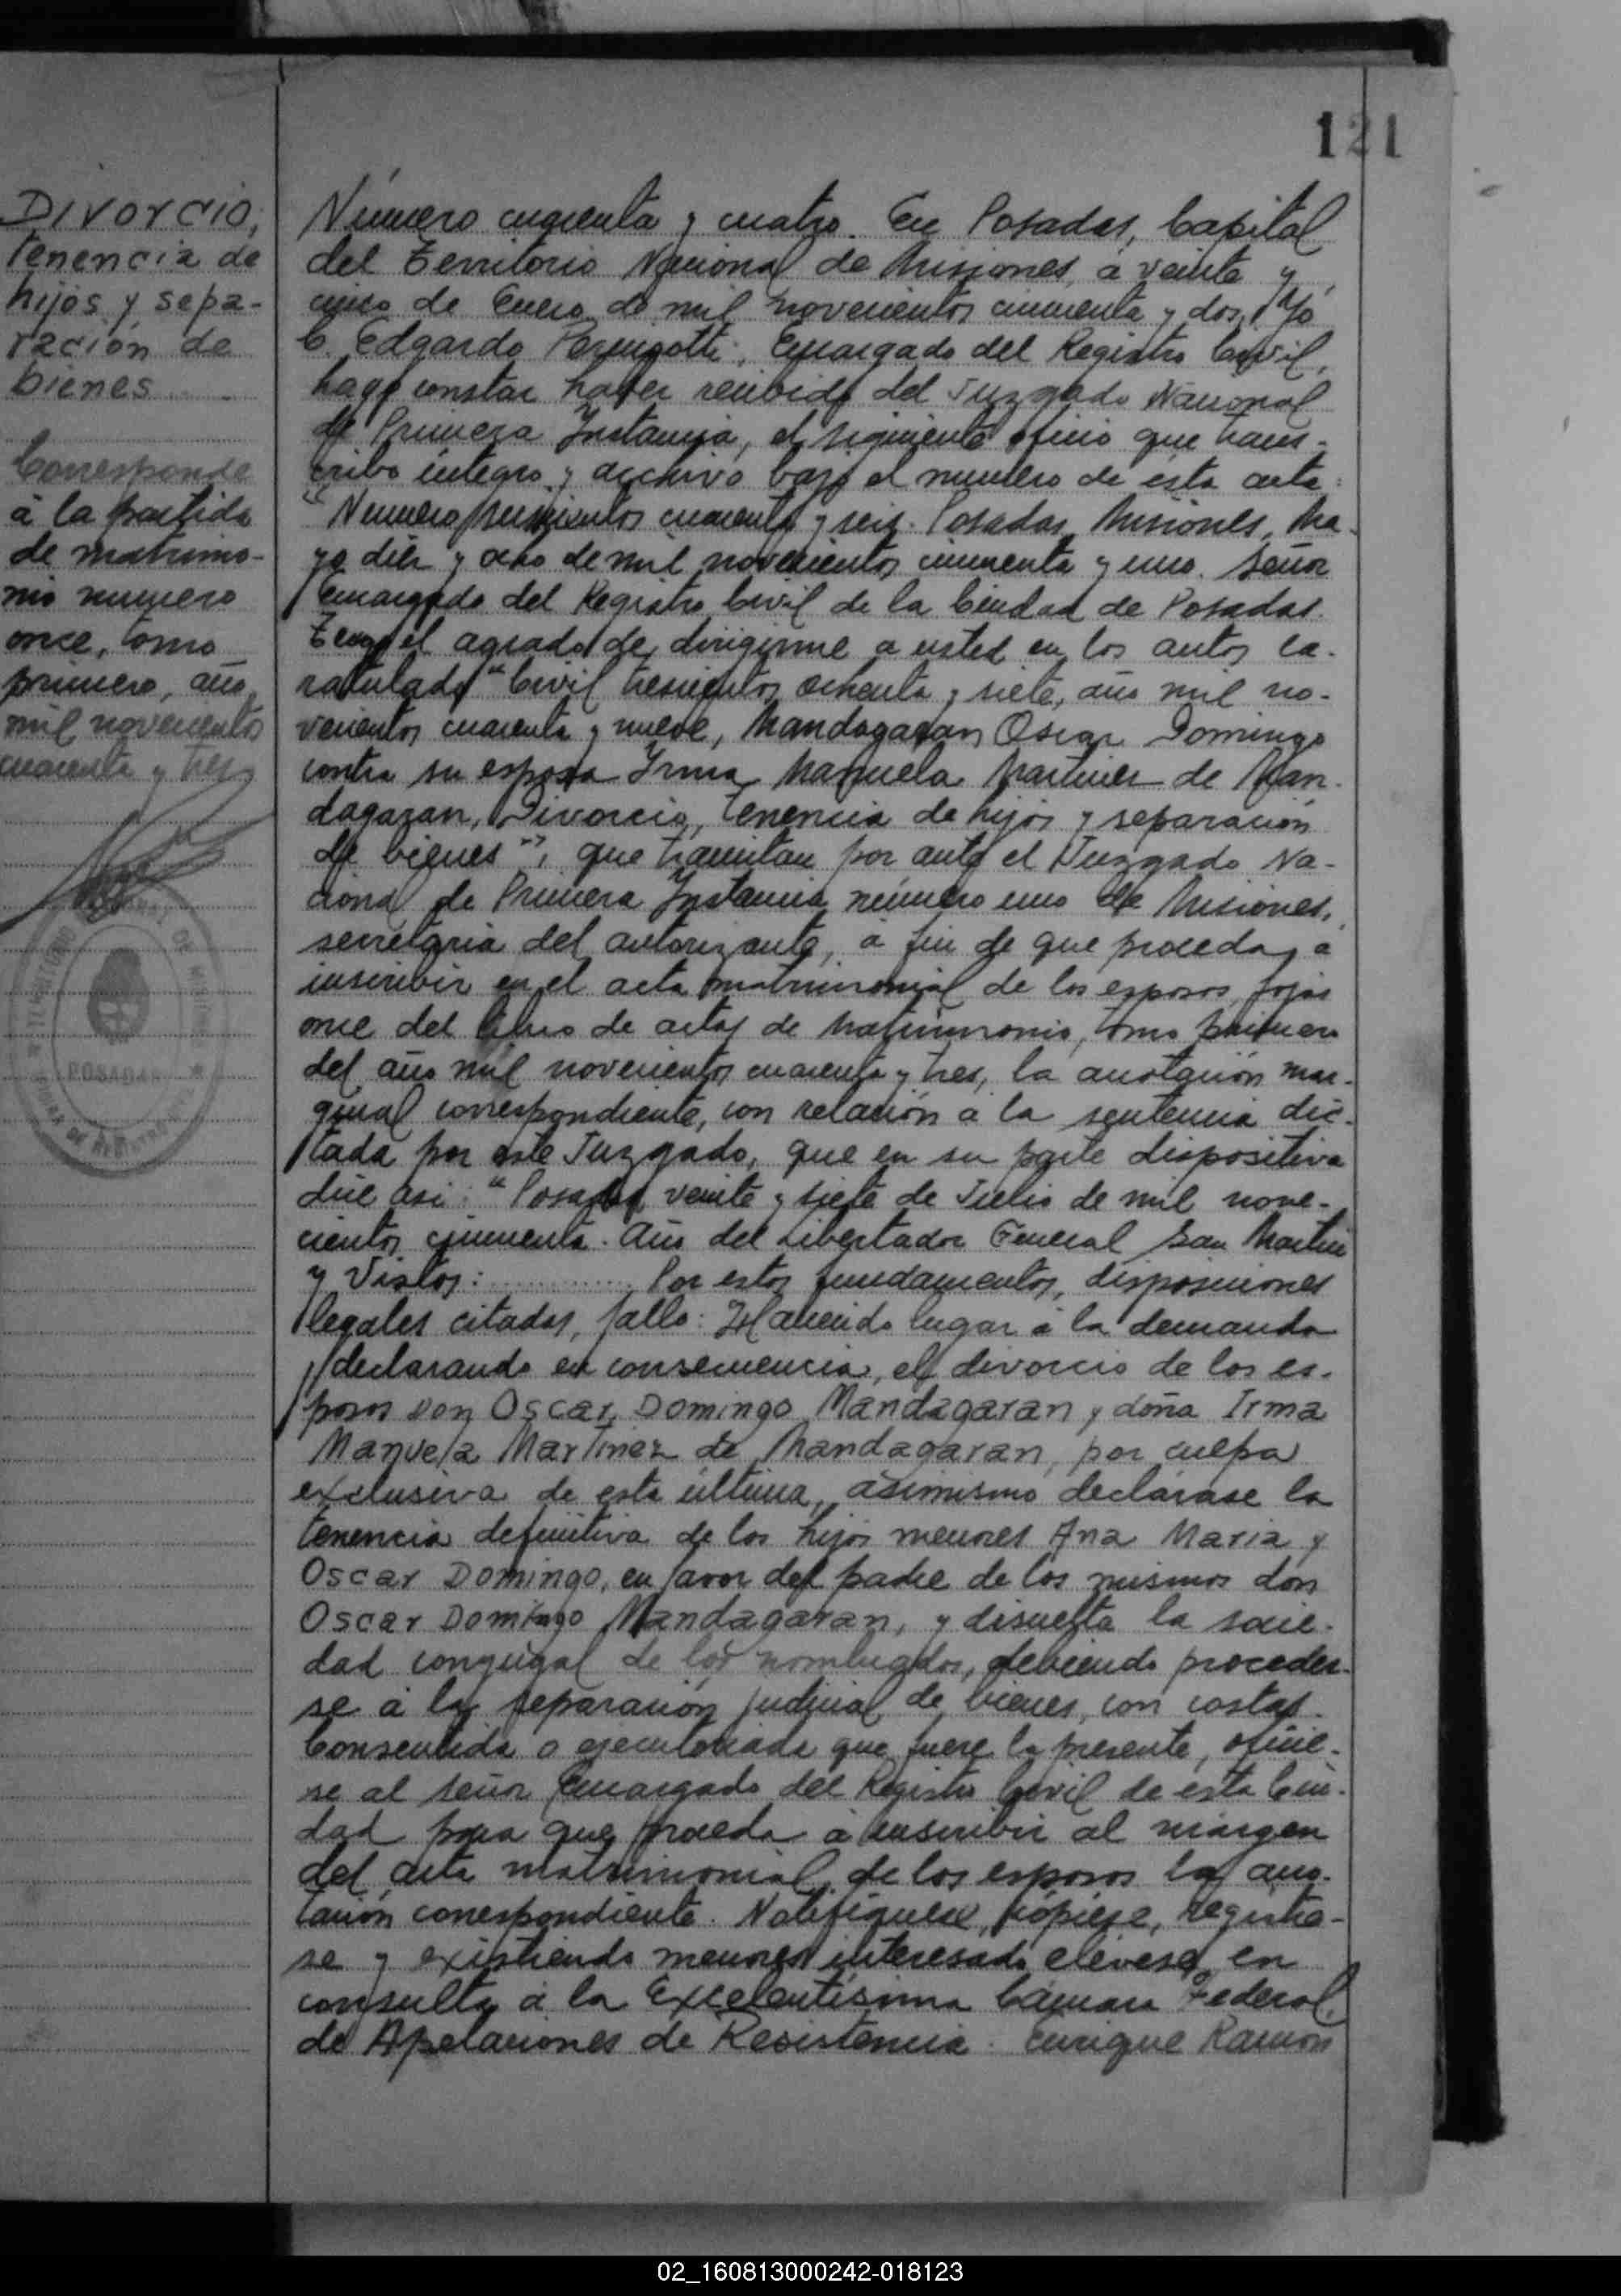 121
Divorcio,
tenencia de
hijos y sepa-
ración de
bienes
Corresponde
á la partida
de matrimo-
nio numero
once, tomo
primero, año
mil novecientos
cuarenta y tres
POSADAS
Número cuarenta y cuatro. En Posadas, Capital
del Territorio Nacional de Misiones, á veinte y
cinco de Enero de mil novecientos cincuenta y dos, Yo
C. Edgardo Perugotti, Encargado del Registro Civil,
hago constar haber recibido del Juzgado Nacional
de Primera Instancia, el siguiente oficio que trans-
cribo íntegro y archivo bajo el numero de esta acta:
"Numero cuarenta y seis. Posadas, Misiones, Ma-
yo diez y ocho de mil novecientos cincuenta y uno. Señor
Encargado del Registro Civil de la Ciudad de Posadas.
Tengo el agrado de dirigirme a usted en los autos ca-
ratulado "Civil trescientos ochenta y siete, año mil no-
vecientos cuarenta y nueve, Mandagaran Oscar Domingo
contra su esposa Irma Manuela Martinez de Man-
dagaran, Divorcio, tenencia de hijos y separación
de bienes", que tramitan por ante el Juzgado Na-
cional de Primera Instancia número uno de Misiones,
secretaría del autorizante, á fin de que proceda, a
inscribir en el acta matrimonial de los esposos, fojas
once del libro de actas de matrimonio, tomo primero
del año mil novecientos cuarenta y tres, la anotación mar-
ginal correspondiente, con relación á la sentencia dic-
tada por este Juzgado, que en su parte dispositiva
dice asi: "Posadas, veinte y siete de Julio de mil nove-
cientos cincuenta. Año del Libertador General San Martin
y Vistos: ............... Por estos fundamentos, disposiciones
legales citadas, fallo: Haciendo lugar á la demanda
declarando en consecuencia, el divorcio de los es-
posos Don Oscar Domingo Mandagaran y doña Irma
Manuela Martinez de Mandagaran, por culpa
exclusiva de esta última, asimismo declárase la
tenencia definitiva de los hijos menores Ana Maria y
Oscar Domingo, en favor del padre de los mismos don
Oscar Domingo Mandagaran, y disuelta la socie-
dad conyugal de los nombrados, debiendo proceder-
se á la separación judicial de bienes, con costas.
Consentida o ejecutoriada que fuere la presente, ofície-
se al señor Encargado del Registro Civil de esta Ciu-
dad para que proceda á inscribir al márgen
del acta matrimonial de los esposos la ano-
tación correspondiente. Notifíquese, cópiese, registre-
se y existiendo menores interesado elévese en
consulta á la Excelentísima Cámara Federal
de Apelaciones de Resistencia. Enrique Ramón
02_160813000242-018123